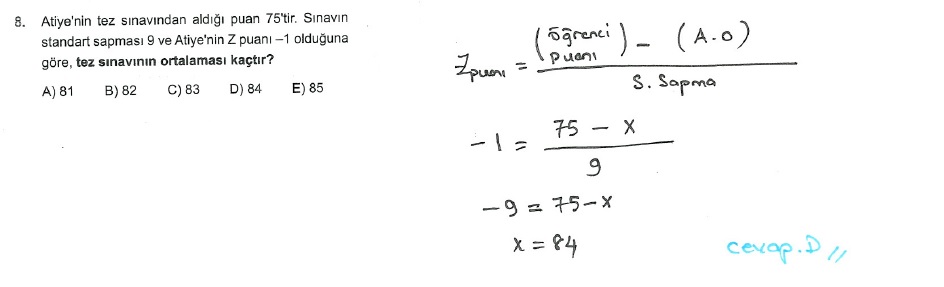 8. Atiye'nin tez sınavından aldığı puan 75'tir. Sınavın
standart sapması 9 ve Atiye'nin Z puanı –1 olduğuna
göre, tez sınavının ortalaması kaçtır?
A) 81 B) 82 C) 83 D) 84 E) 85
Zpuanı = (öğrenci puanı) – (A.O)
S. Sapma
-1 = 75 – x
9
-9 = 75-x
x = 84
cevap.D //